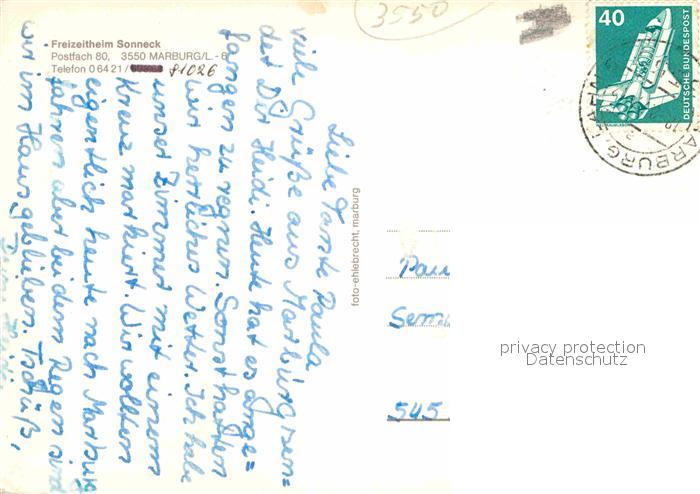 3550
40
DEUTSCHE BUNDESPOST
MARBURG
Freizeitheim Sonneck
Postfach 80, 3550 MARBURG/L.-8
Telefon 0 64 21 / 81026
Liebe Tante Paula
viele Grüße aus Marburg sen=
det Dir Heidi. Heute hat es ange=
fangen zu regnen. Sonst hatten
wir herrliches Wetter. Ich habe
unser Zimmer mit einem
Kreuz markiert. Wir wollten
eigentlich heute nach Marburg
fahren aber bei dem Regen sind
wir im Haus geblieben. Tschüß,
Deine Heidi
foto-ehlebrecht, marburg
Pau
Sem
545
privacy protection
Datenschutz